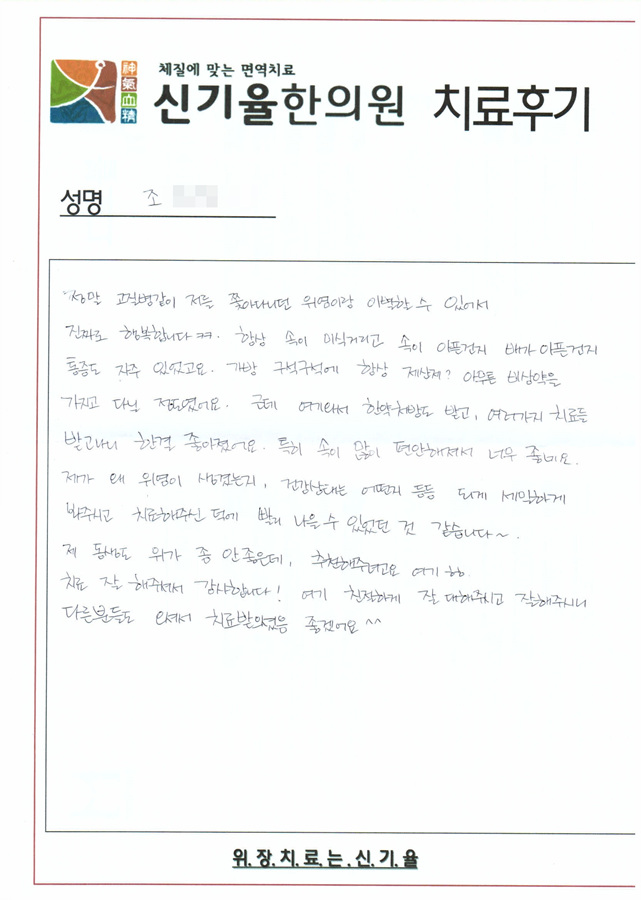 神氣血精
체질에 맞는 면역치료
신기율한의원 치료후기
성명 조
정말 고질병같이 저를 쫓아다니던 위염이랑 이별할 수 있어서
진짜로 행복합니다 ㅋㅋ. 항상 속이 미식거리고 속이 아픈건지 배가 아픈건지
통증도 자주 있었고요. 가방 구석구석에 항상 제산제? 아무튼 비상약을
가지고 다닐 정도였어요. 근데 여기와서 한약처방도 받고, 여러가지 치료를
받고나니 한결 좋아졌어요. 특히 속이 많이 편안해져서 너무 좋네요.
제가 왜 위염이 생겼는지, 건강상태는 어떤지 등등 되게 세밀하게
봐주시고 치료해주신 덕에 빨리 나을 수 있었던 것 같습니다~.
제 동생도 위가 좀 안좋은데, 추천해주려고요 여기 ㅎㅎ.
치료 잘 해주셔서 감사합니다! 여기 친절하게 잘 대해주시고 잘해주시니
다른분들도 오셔서 치료받으셨음 좋겠어요 ^^
위.장.치.료.는.신.기.율